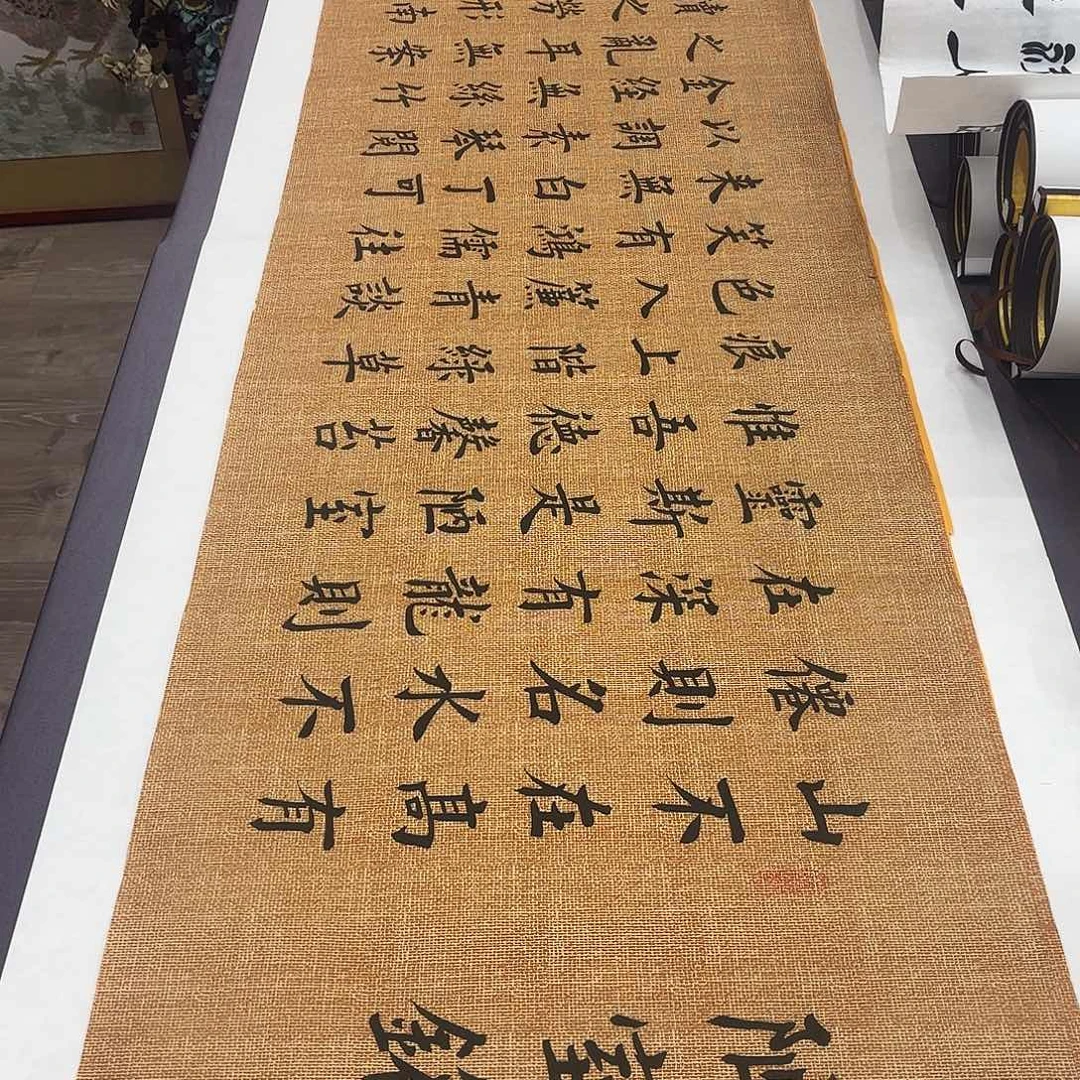 陋室銘
山不在髙有
僊則名水不
在深有龍則
靈斯是陋室
惟吾德馨苔
痕上階綠草
色入簾青談
笑有鴻儒往
来無白丁可
以調素琴閱
金經無絲竹
之亂耳無案
牘之勞形南